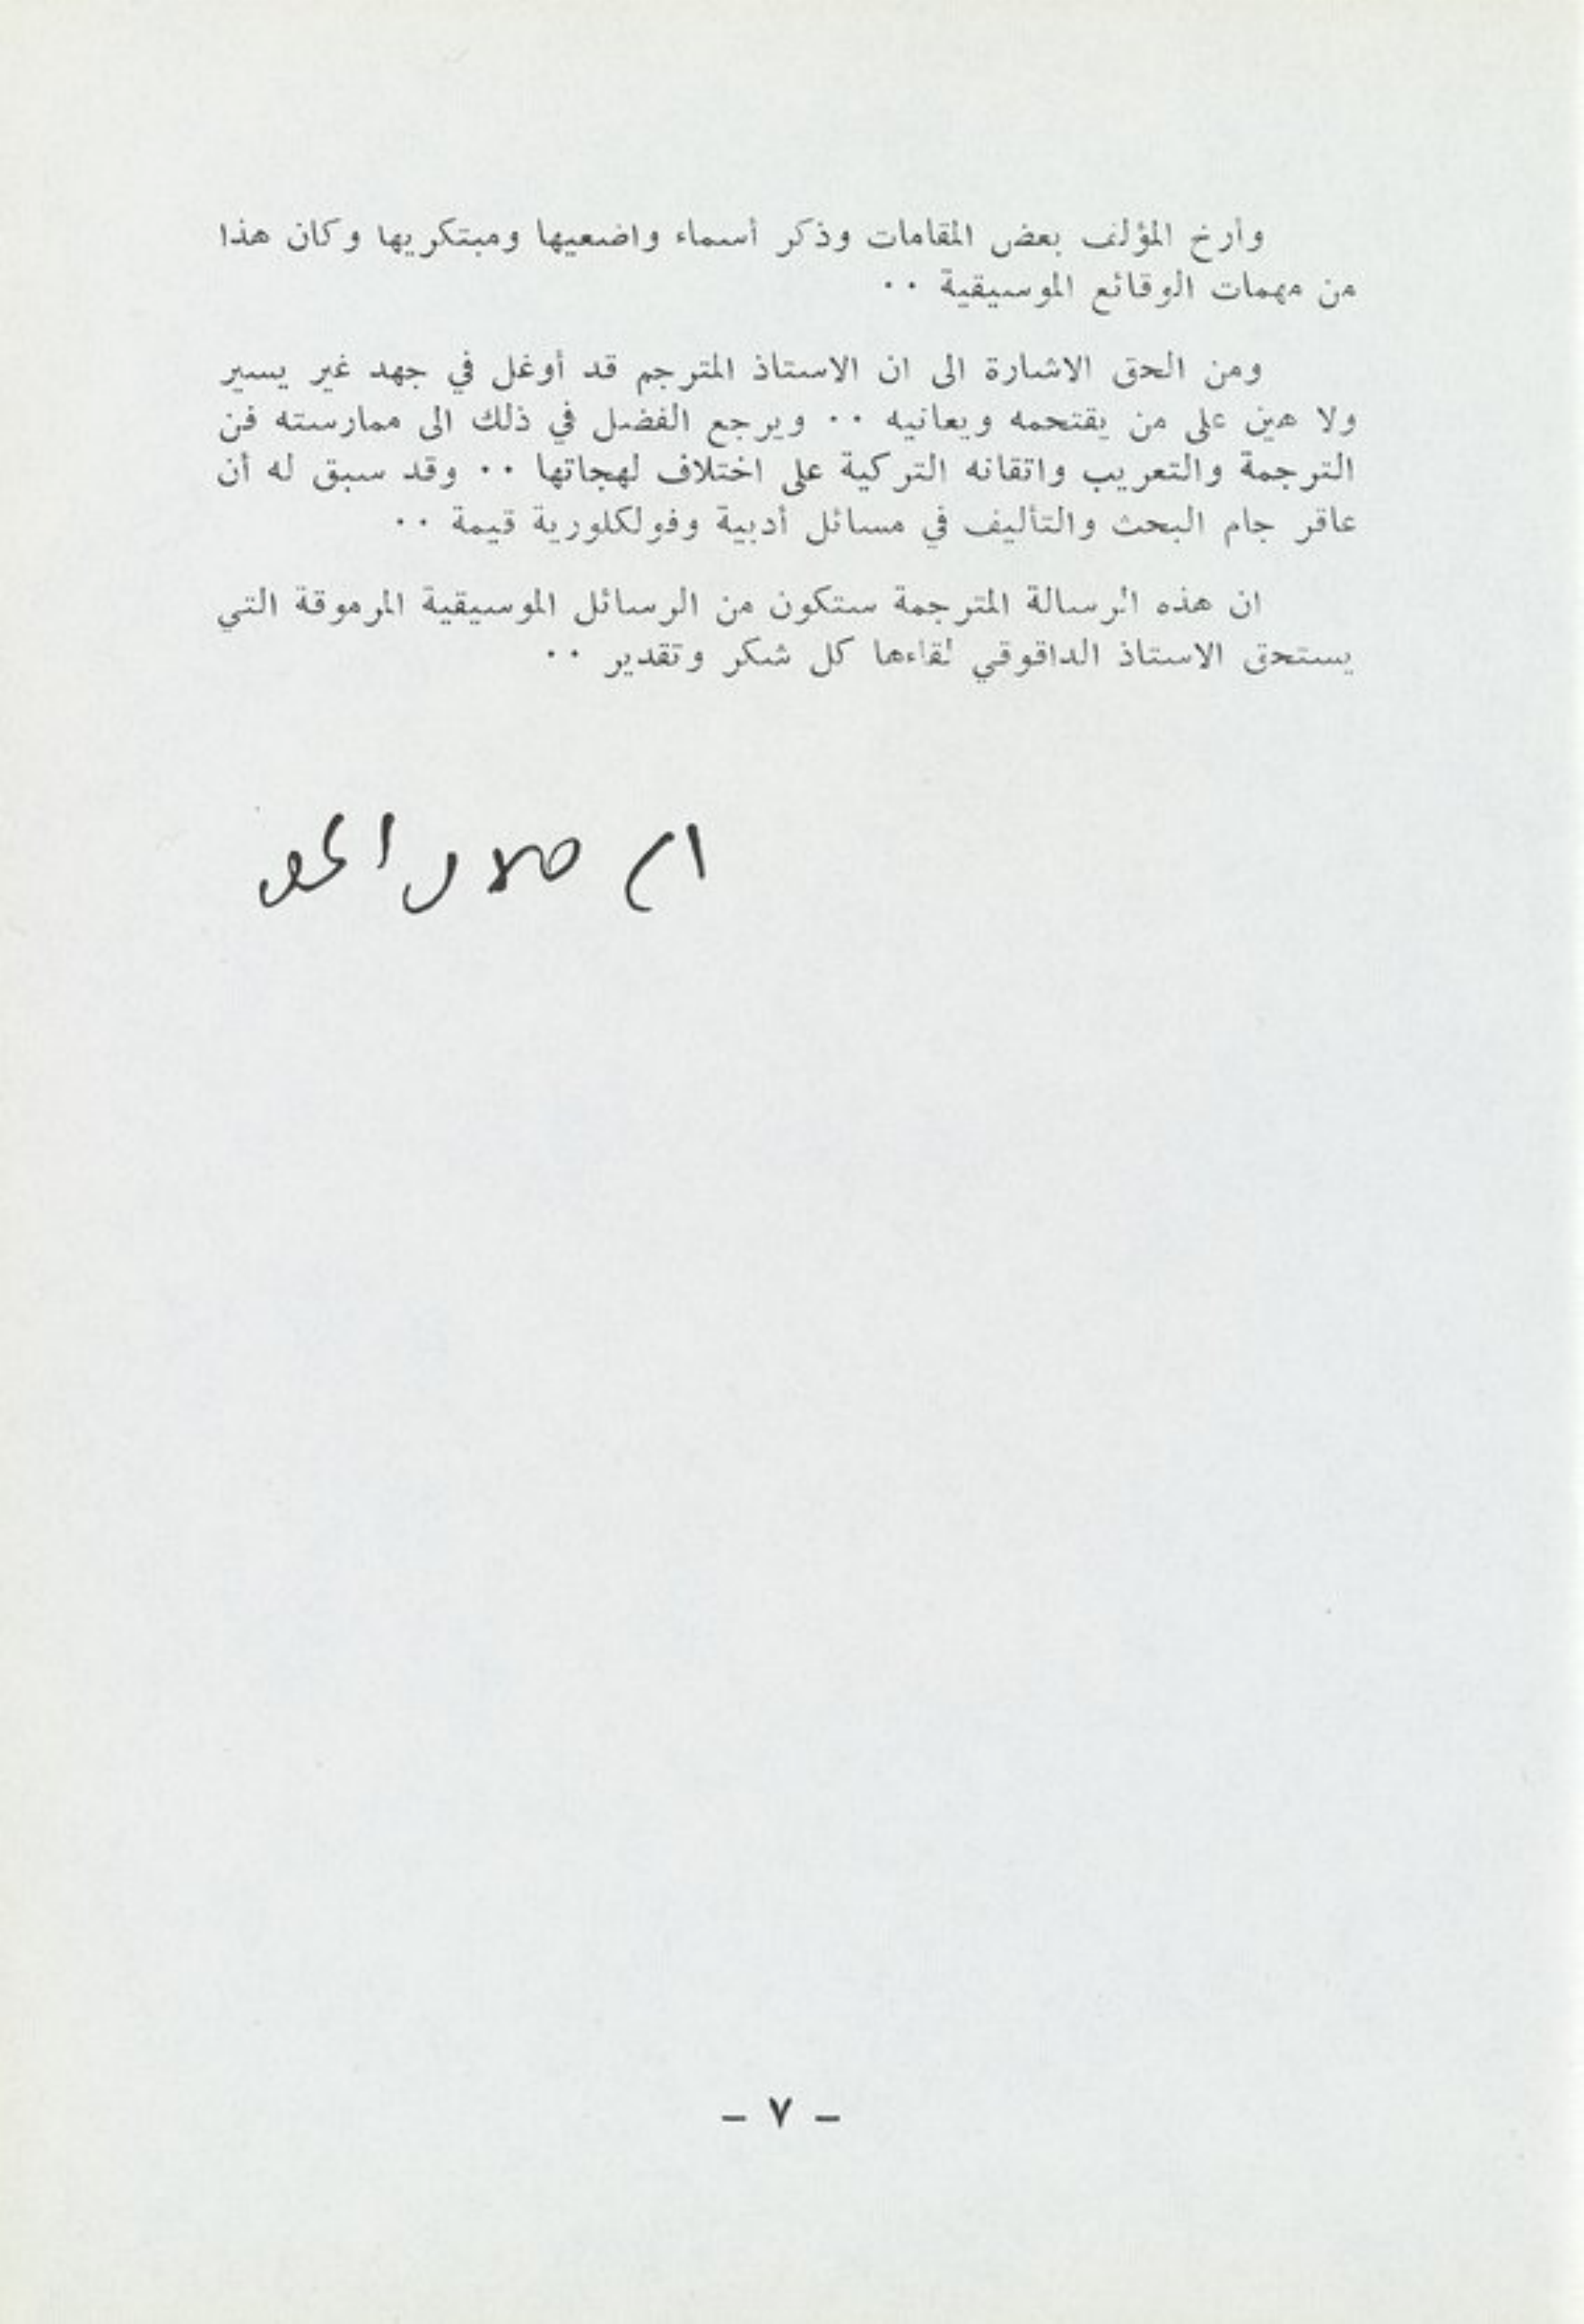 وأرخ المؤلف بعض المقامات وذكر أسماء واضعيها ومبتكريها وكان هذا
من مهمات الوقائع الموسيقية ٠٠
ومن الحق الاشارة الى ان الاستاذ المترجم قد أوغل في جهد غير يسير
ولا هين على من يقتحمه ويعانيه ٠٠ ويرجع الفضل في ذلك الى ممارسته فن
الترجمة والتعريب واتقانه التركية على اختلاف لهجاتها ٠٠ وقد سبق له أن
عاقر جام البحث والتأليف في مسائل أدبية وفولكلورية قيمة ٠٠
ان هذه الرسالة المترجمة ستكون من الرسائل الموسيقية المرموقة التي
يستحق الاستاذ الداقوقي لقاءها كل شكر وتقدير ٠٠
– ٧ –